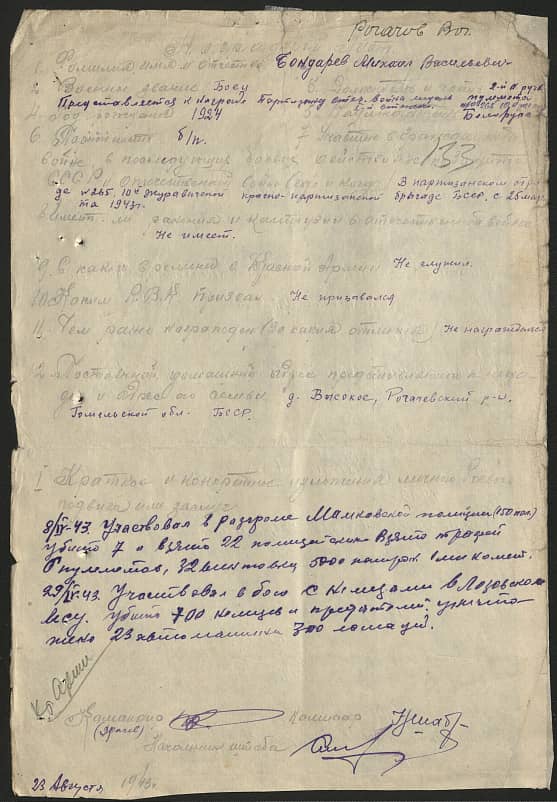 Рогачов Вог.
Наградной лист.
1. Фамилия имя и отчество Бондарев Михаил Васильевич
2. Военное звание Боец 5. Должность и часть 2-й н. руч. пулемета
Представляется к награде Партизану отеч. война медаль 2-й степени.
4. Год рождения 1924 Белорус
6. Партийность б/п. 7. Участие в гражданской
войне и последующих боевых действиях по защите 133
СССР и отечественной войне (где и когда) В партизанском отря-
де № 265 10й Журавичской красно-партизанской бригаде БССР, с 25 мар-
та 1943 г.
8. Имеет ли ранения и контузии в отечественной войне
Не имеет.
9. С какого времени в Красной Армии Не служил.
10. Каким Р.В.К. призван Не призывался
11. Чем ранее награжден (за какие отличия) Не награждался
12. Постоянный домашний адрес представляемого к награ-
де и адрес его семьи д. Высокое, Рогачевский р-н.
Гомельской обл. БССР.
I Краткое и конкретное изложение личного боевого
подвига или заслуг
8/IV-43. Участвовал в разгроме полиции (150 чел)
убито 7 и взято 22 полицейских взято трофей
пулеметов, 32 винтовки 5000 патрон 1 миномет.
29/IV-43. Участвовал в бою с немцами в Лозовском
лесу. убито 700 немцев и предателей. уничто-
жено 23 автомашины 300 лошадей.
Ко Армии
Командир Комиссар
(Бригады)
Начальник штаба
23 Августа 1943 г.